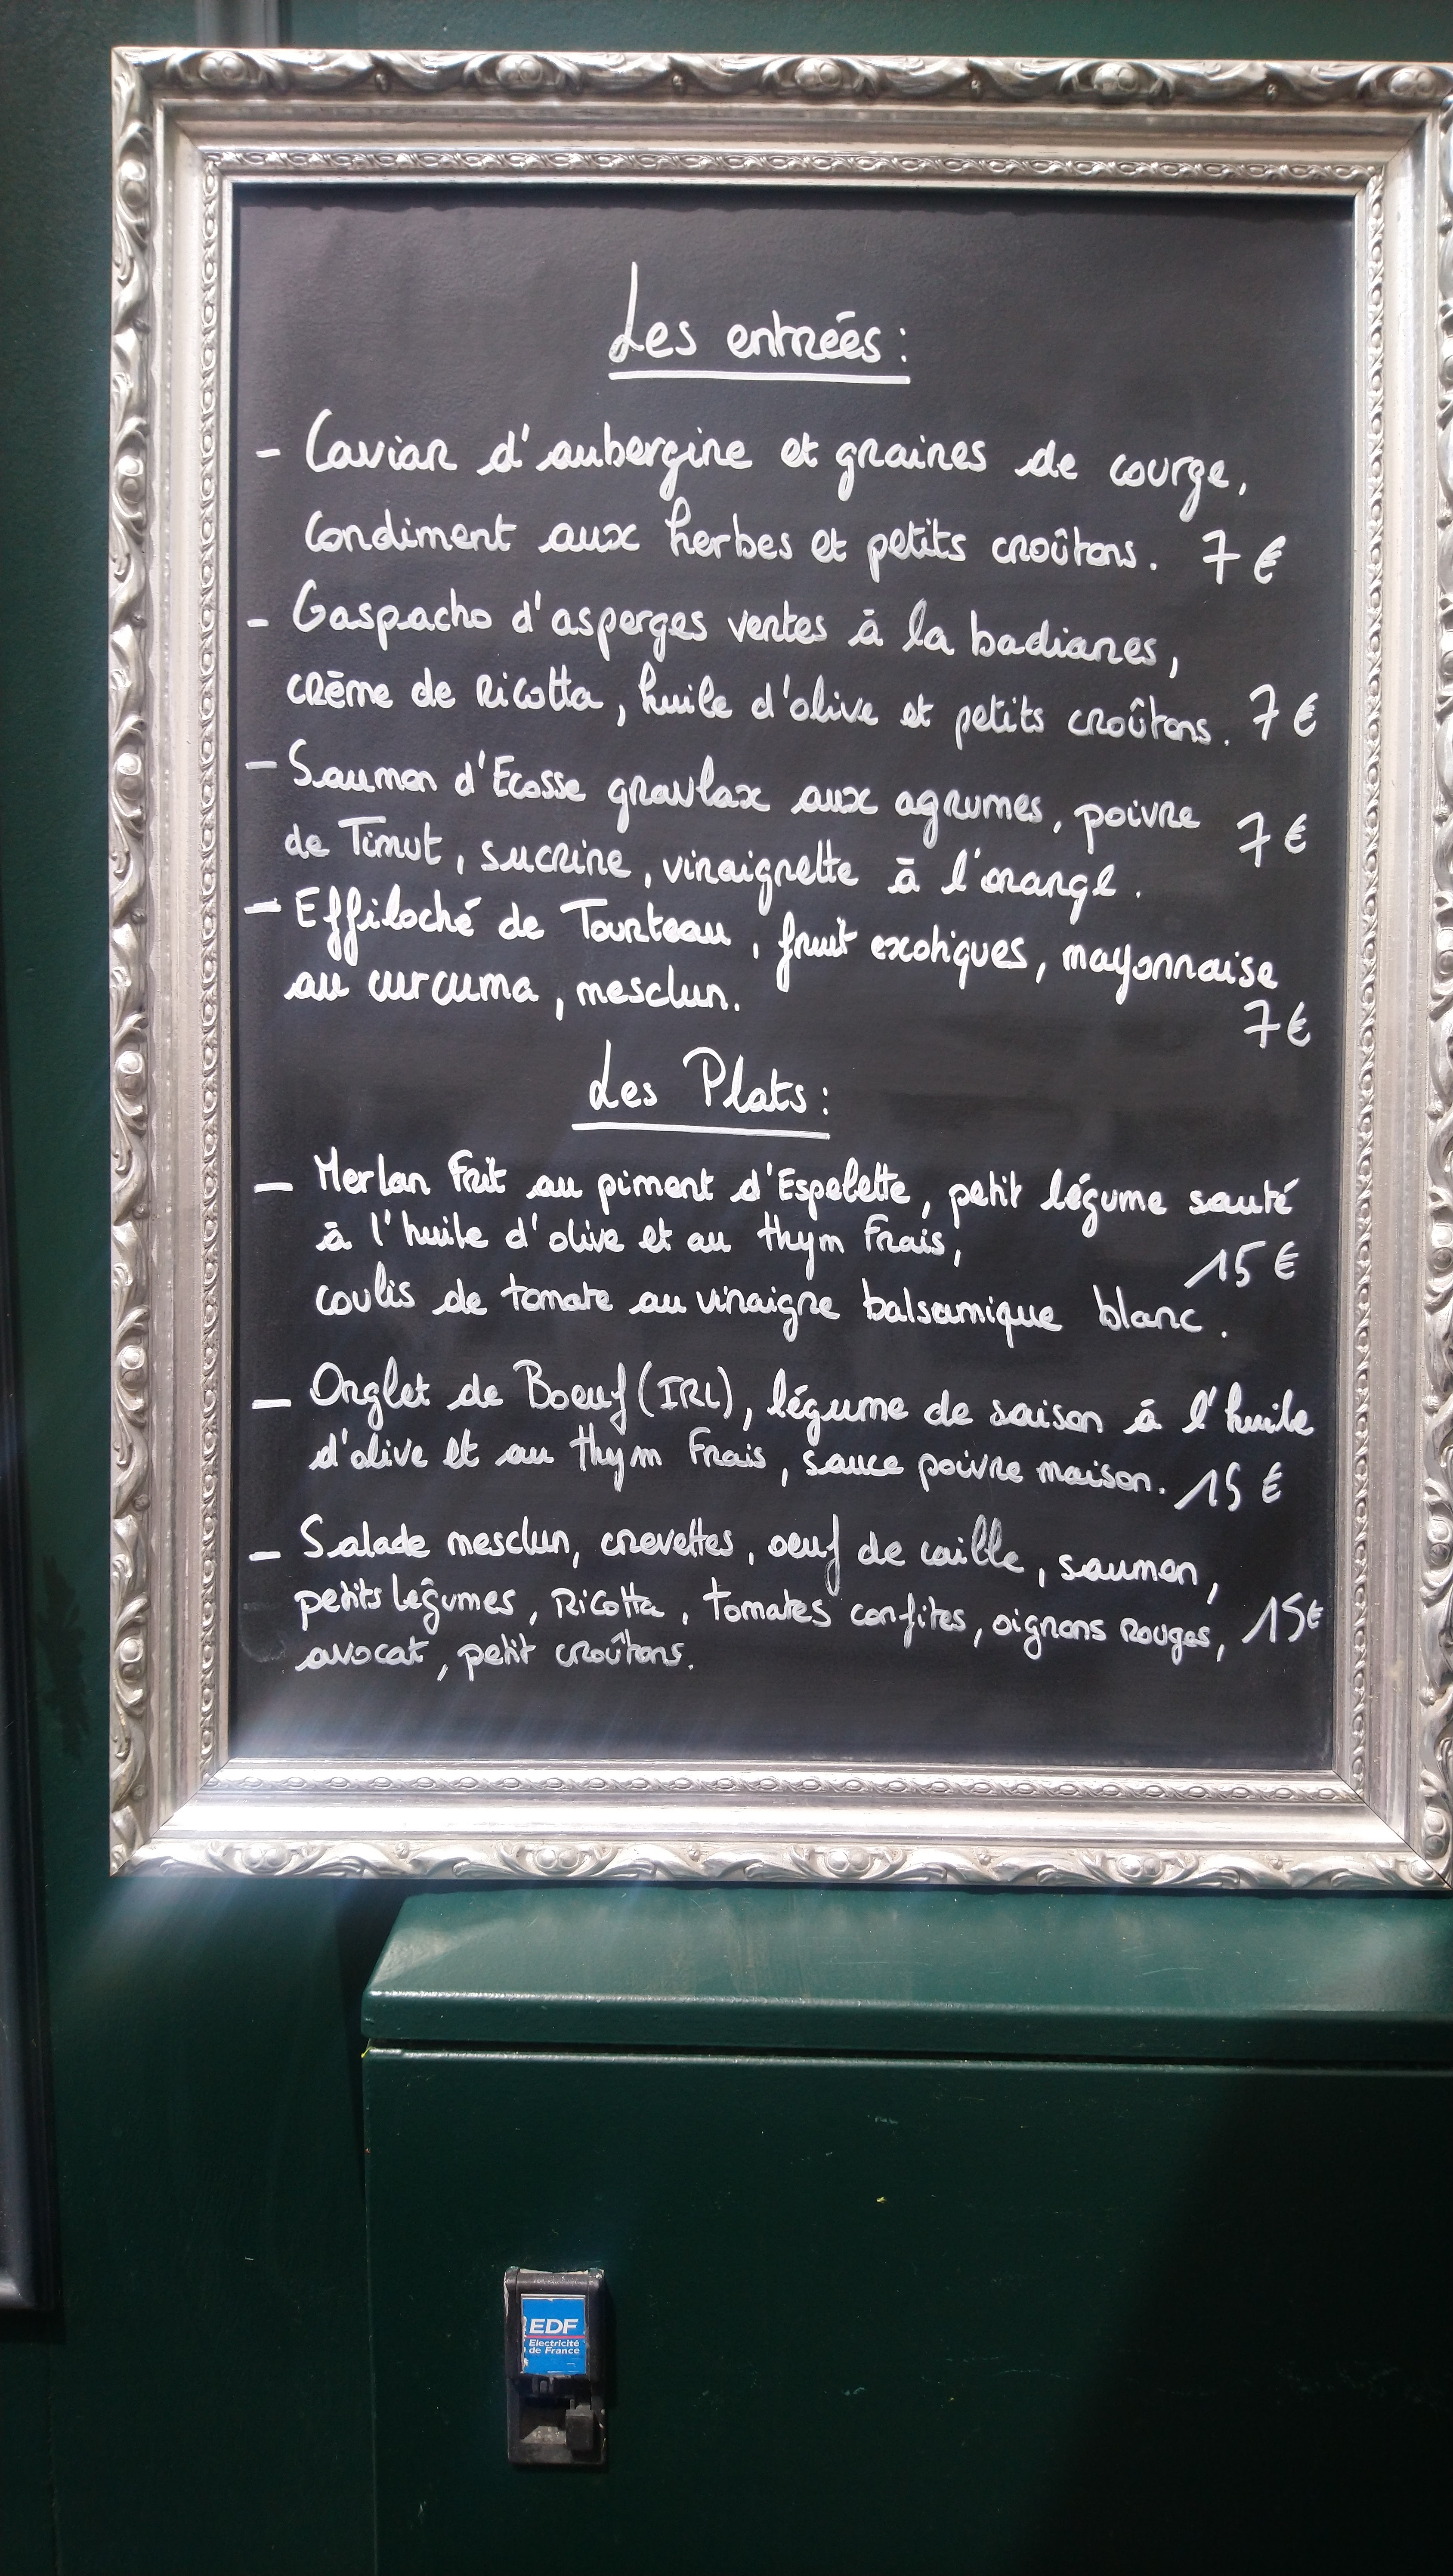 Les entrées :
- Caviar d'aubergine et graines de courge,
Condiment aux herbes et petits croûtons. 7 €
- Gaspacho d'asperges vertes à la badianes,
crème de Ricotta, huile d'olive et petits croûtons. 7 €
- Saumon d'Ecosse gravlax aux agrumes, poivre
de Timut, sucrine, vinaigrette à l'orange. 7 €
- Effiloché de Tourteau, fruit exotiques, mayonnaise
au curcuma, mesclun.
7 €
Les Plats :
- Merlan Frit au piment d'Espelette, petit légume sauté
à l'huile d'olive et au thym Frais,
15 €
coulis de tomate au vinaigre balsamique blanc.
- Onglet de Boeuf (IRL), légume de saison à l'huile
d'olive et au thym Frais, sauce poivre maison. 15 €
- Salade mesclun, crevettes, oeuf de caille, saumon,
petits légumes, Ricotta, tomates confites, oignons Rouges, 15 €
avocat, petit croûtons.
EDF
Electricité
de France